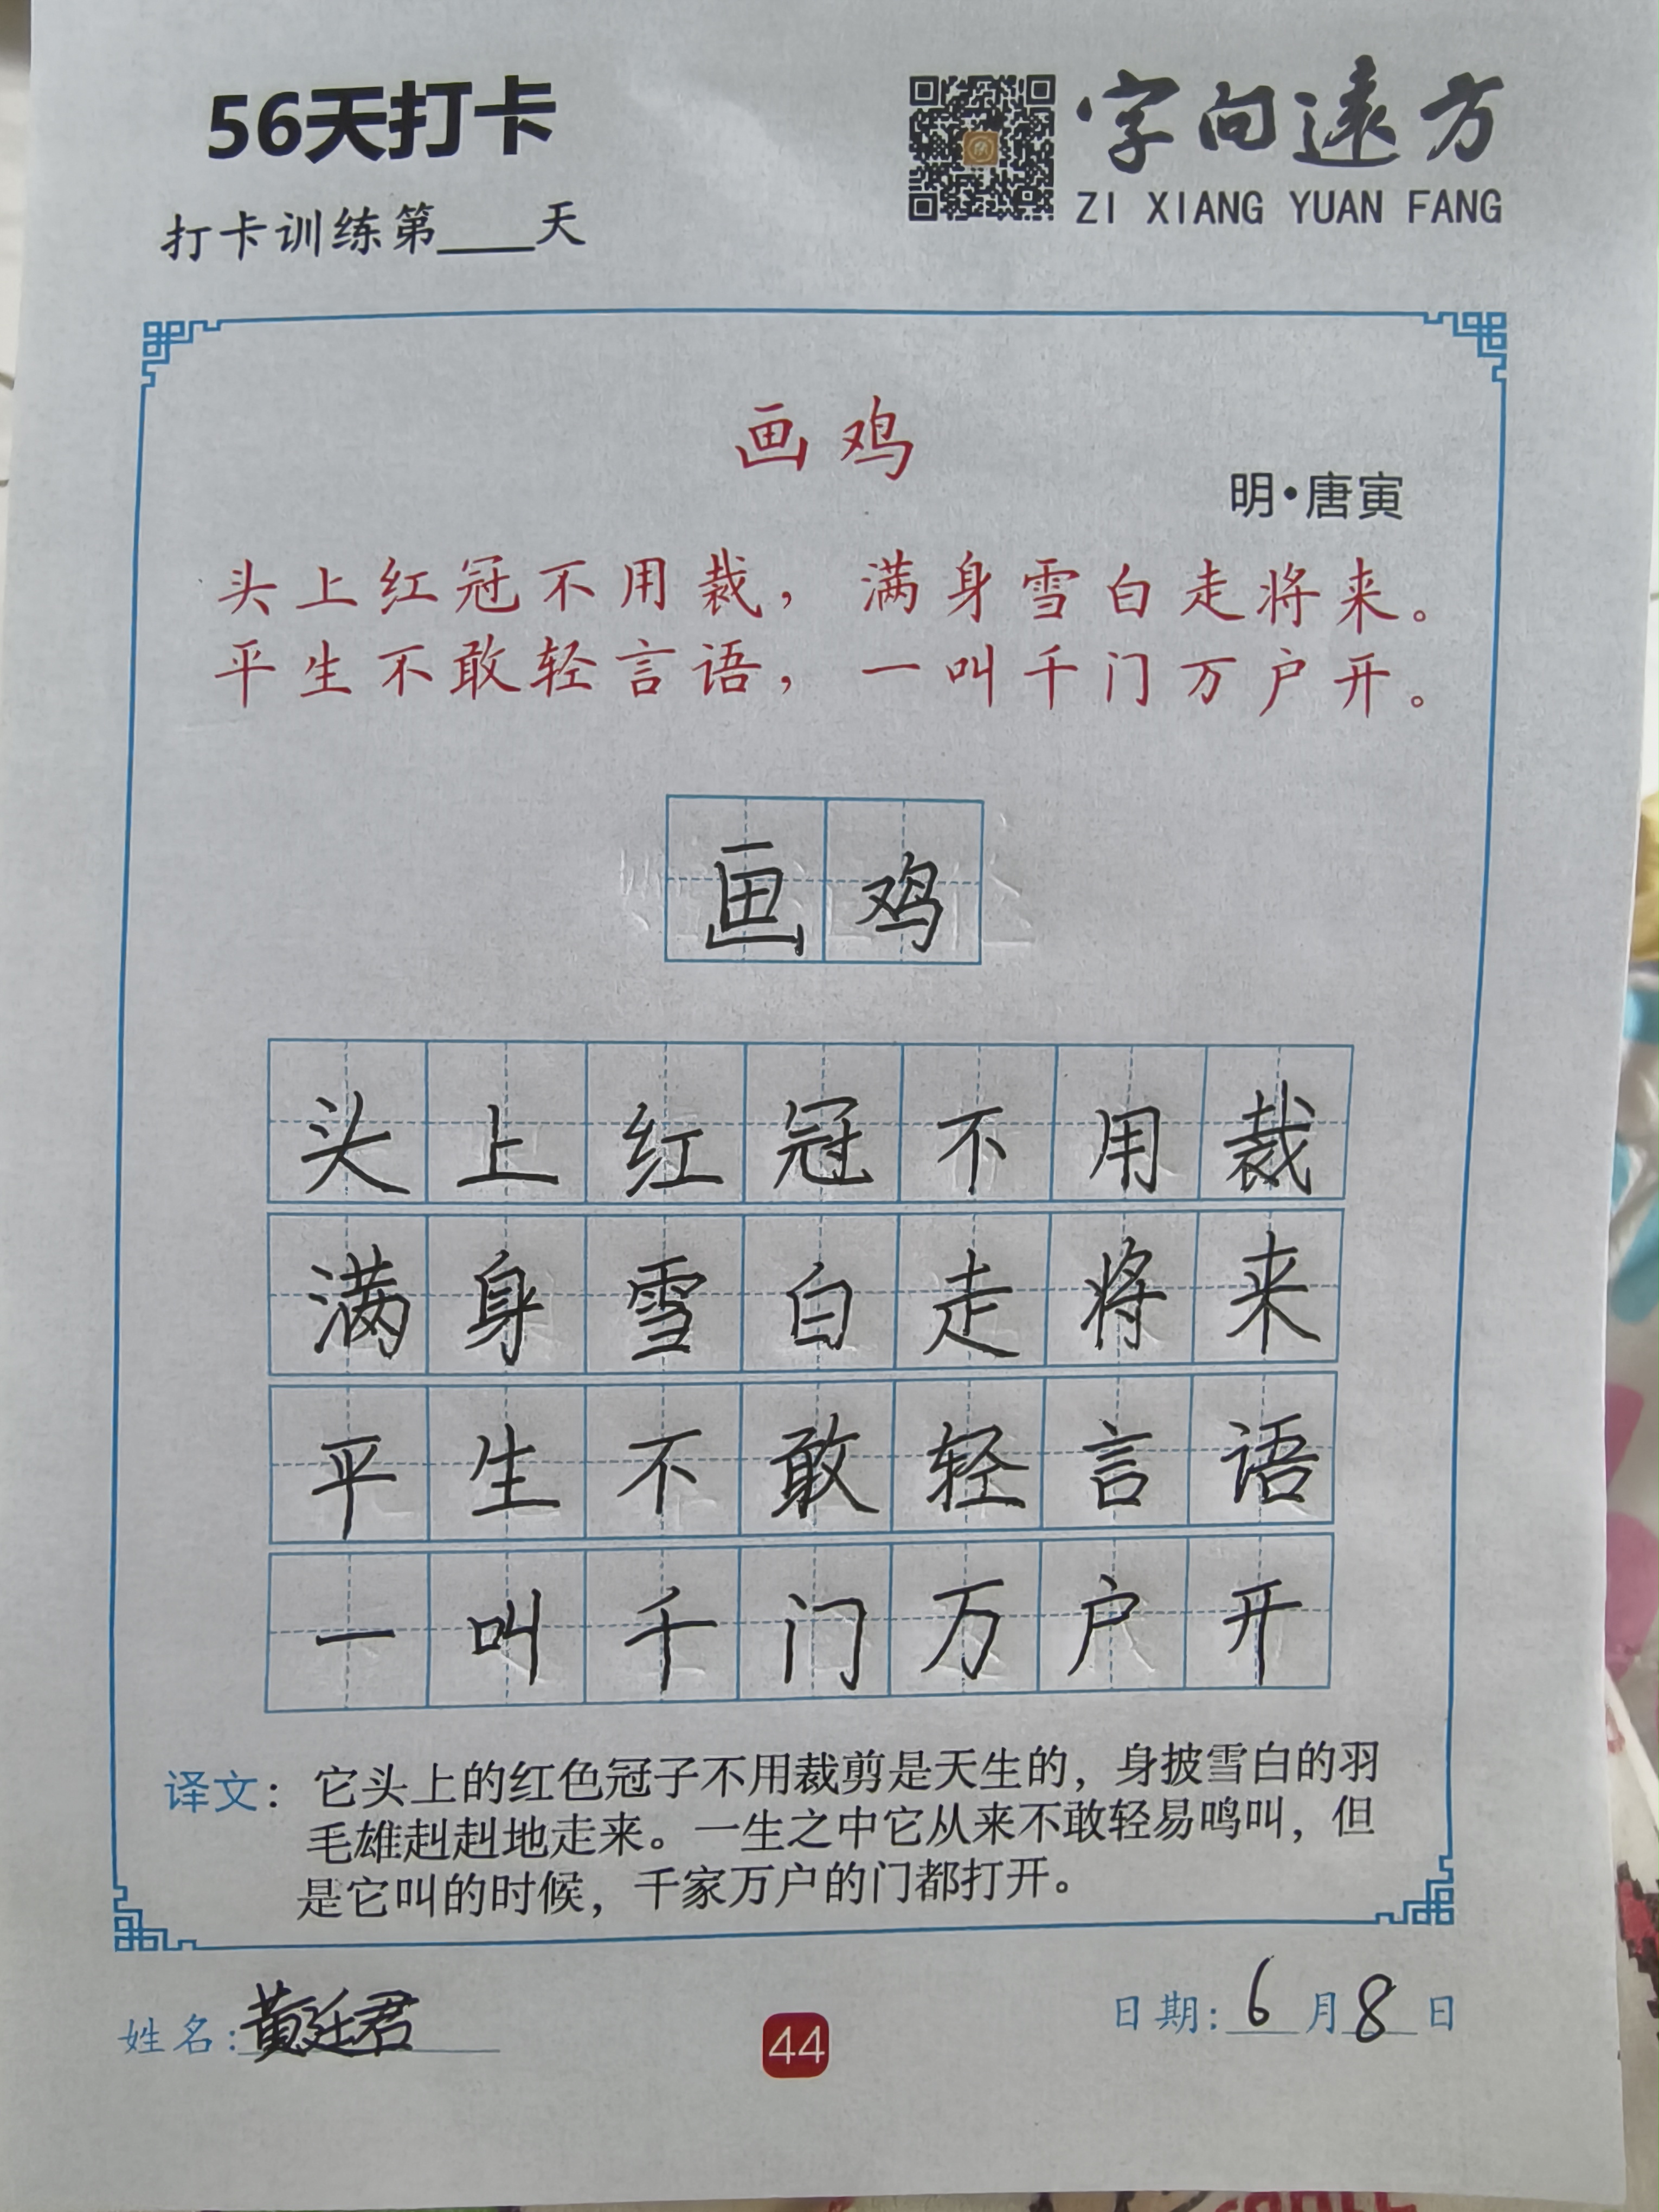 56天打卡
字向遠方
ZI XIANG YUAN FANG
打卡训练第____天
画鸡
明·唐寅
头上红冠不用裁，满身雪白走将来。
平生不敢轻言语，一叫千门万户开。
画鸡
头上红冠不用裁
满身雪白走将来
平生不敢轻言语
一叫千门万户开
译文：它头上的红色冠子不用裁剪是天生的，身披雪白的羽
毛雄赳赳地走来。一生之中它从来不敢轻易鸣叫，但
是它叫的时候，千家万户的门都打开。
姓名:黄廷君
44
日期:6月8日